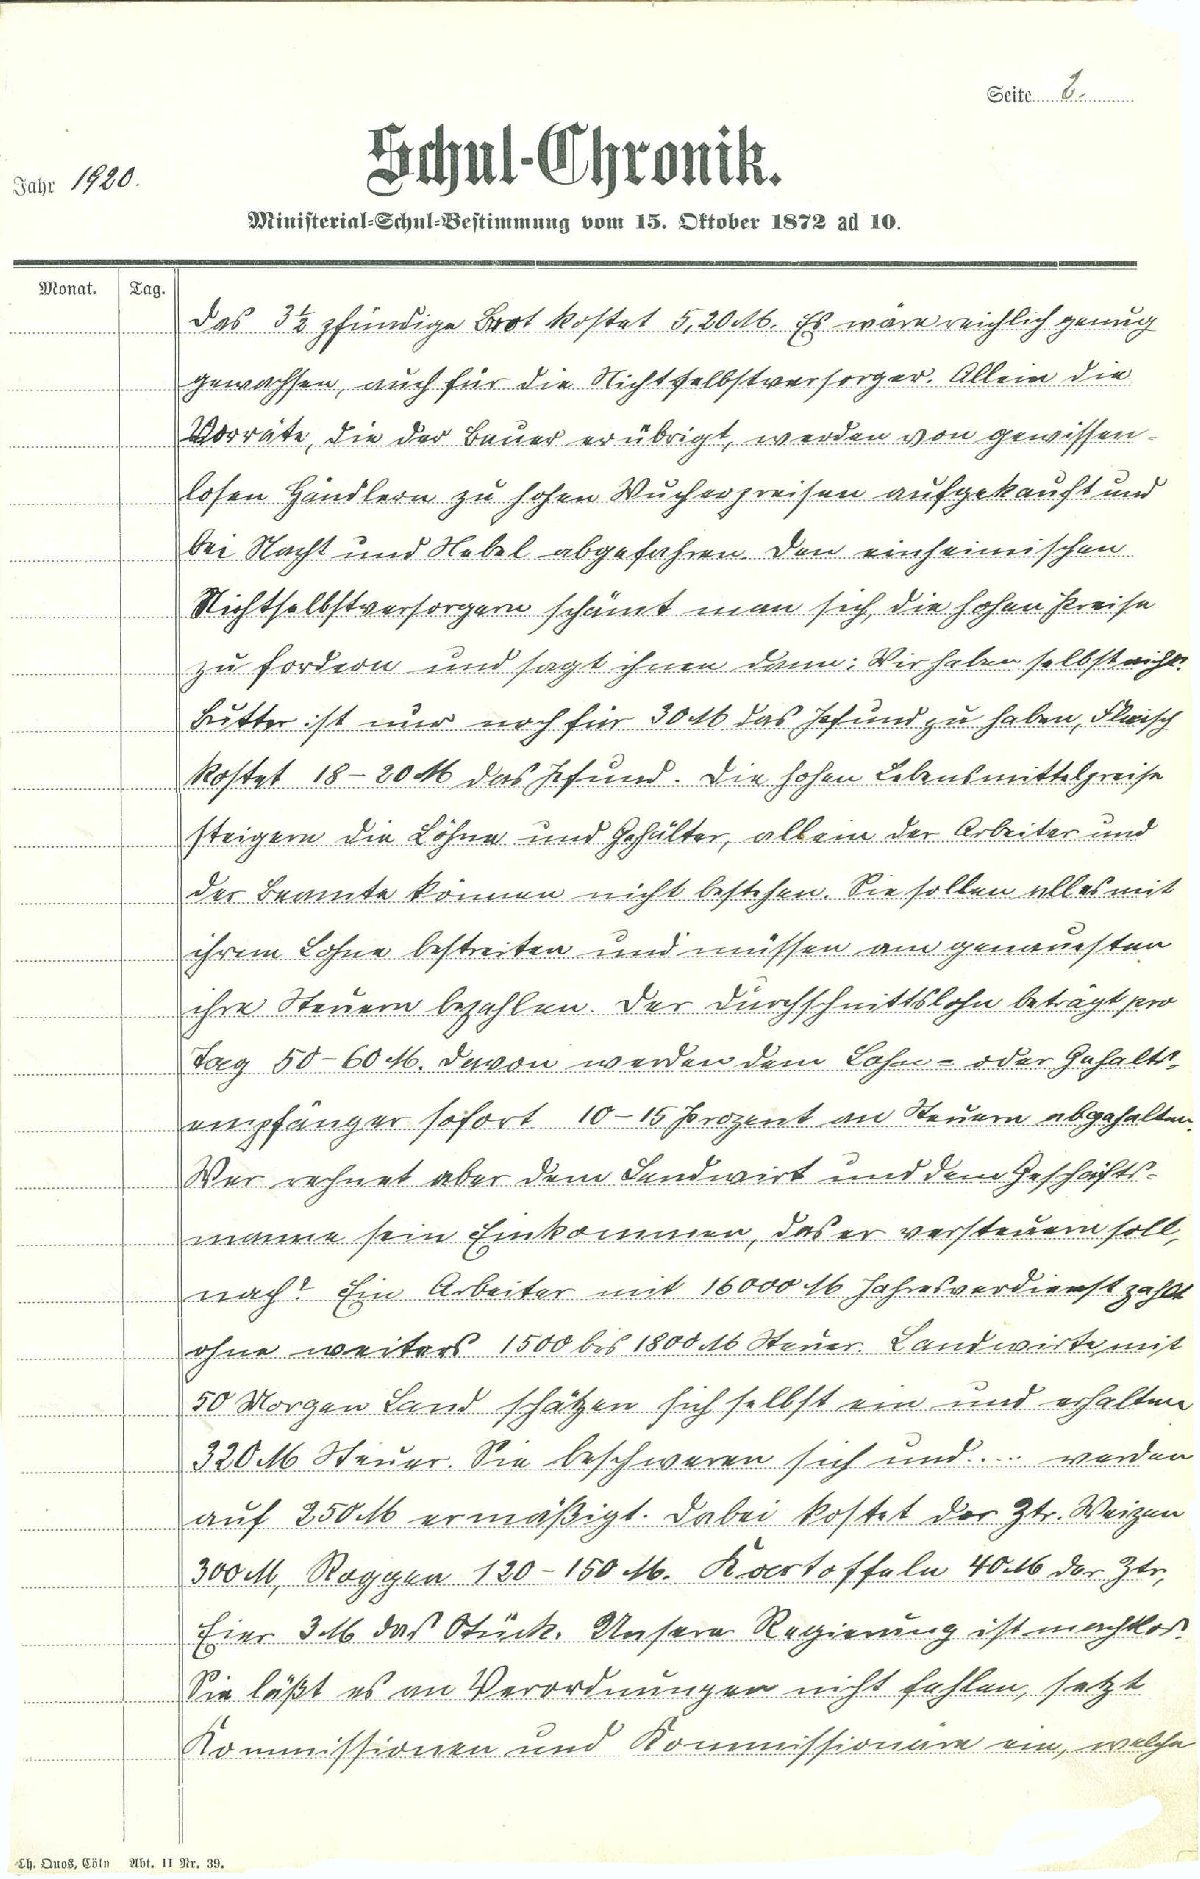 Seite 2.
Schul-Chronik.
Jahr 1920.
Ministerial-Schul-Bestimmung vom 15. Oktober 1872 ad 10.
Monat. Tag.
Das 3½ pfündige Brot kostet 5,20 M. Es wäre reichlich genug
gewachsen, auch für die Nichtselbstversorger. Allein die
Vorräte, die der Bauer erübrigt, werden von gewissen-
losen Händlern zu hohen Wucherpreisen aufgekauft und
bei Nacht und Nebel abgefahren. Den einheimischen
Nichtselbstversorgern schämt man sich, die hohen Preise
zu fordern und sagt ihnen dann: Wir haben selbst nichts.
Butter ist nur noch für 30 M das Pfund zu haben, Fleisch
kostet 18-20 M das Pfund. Die hohen Lebensmittelpreise
steigern die Löhne und Gehälter, allein der Arbeiter und
der Beamte können nicht bestehen. Sie sollen alles mit
ihrem Lohne bestreiten und müssen am genauesten
ihre Steuern bezahlen. Der Durchschnittslohn beträgt pro
Tag 50-60 M. Davon werden dem Lohn- oder Gehalts-
empfänger sofort 10-15 Prozent an Steuern abgehalten.
Wer rechnet aber dem Landwirt und dem Geschäfts-
manne sein Einkommen, das er versteuern soll,
nach? Ein Arbeiter mit 16000 M Jahresverdienst zahlt
ohne weiters 1500 bis 1800 M Steuer. Landwirte mit
50 Morgen Land schätzen sich selbst ein und erhalten
320 M Steuer. Sie beschweren sich und.... werden
auf 250 M ermäßigt. Dabei kostet der Ztr. Weizen
300 M, Roggen 120-150 M. Kartoffeln 40 M der Ztr,
Eier 3 M das Stück. Unsere Regierung ist machtlos.
Sie läßt es an Verordnungen nicht fehlen, setzt
Kommissionen und Kommissionäre ein, welche
Ch. Quos, Cöln Abt. II Nr. 39.